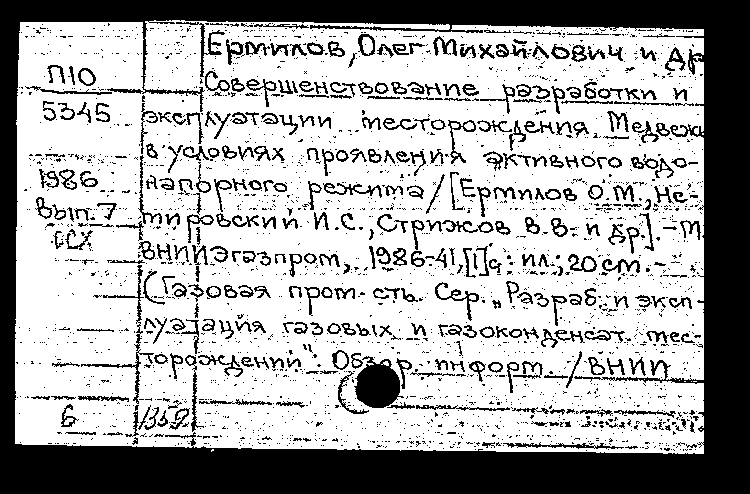 Ермилов, Олег Михайлович и др
П10
Совершенствование разработки и
5345
эксплуатации месторождения Медвежь
в условиях проявления активного водо-
1986
напорного режима / [Ермилов О.М., Не-
Вып. 7
тировский И.С., Стрижов В.В. и др.]. - М.
ССХ
ВНИИЭгазпром, 1986-41,[1]с: ил.; 20 см. -
(Газовая пром-сть. Сер. „Разраб. и эксп-
луатация газовых и газоконденсат. мес-
торождений": Обзор. информ. / ВНИИ
6
1359